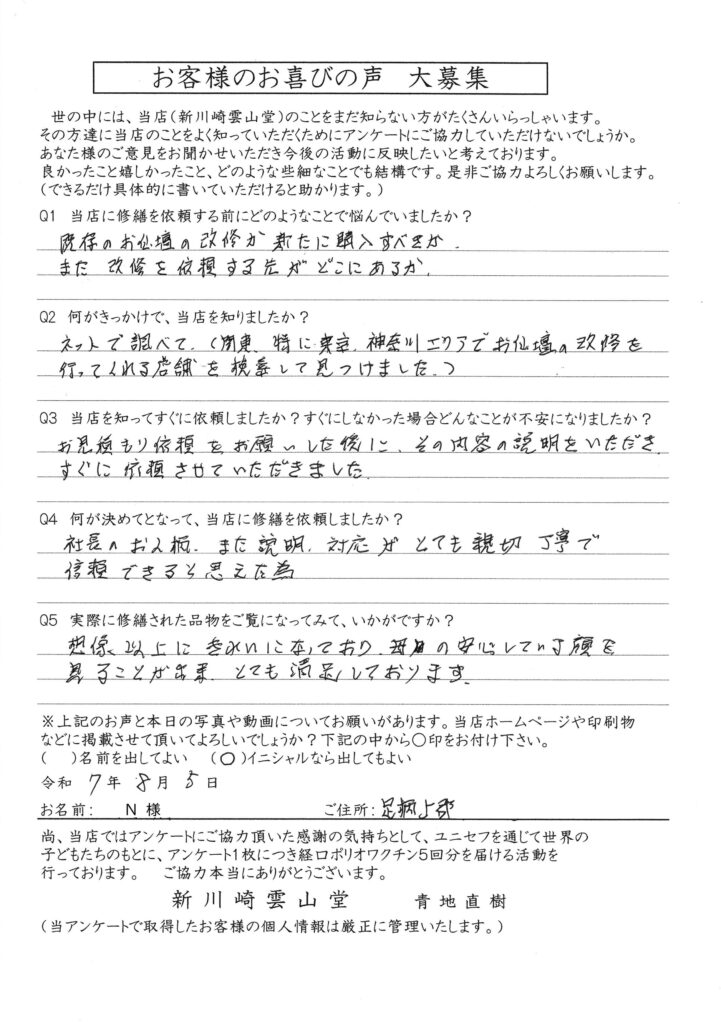 お客様のお喜びの声 大募集
世の中には、当店(新川崎雲山堂)のことをまだ知らない方がたくさんいらっしゃいます。
その方達に当店のことをよく知っていただくためにアンケートにご協力していただけないでしょうか。
あなた様のご意見をお聞かせいただき今後の活動に反映したいと考えております。
良かったこと嬉しかったこと、どのような些細なことでも結構です。是非ご協力よろしくお願いします。
(できるだけ具体的に書いていただけると助かります。)
Q1 当店に修繕を依頼する前にどのようなことで悩んでいましたか?
既存のお仏壇の改修か新たに購入すべきか.
また改修を依頼する先がどこにあるか.
Q2 何がきっかけで、当店を知りましたか?
ネットで調べて.(関東.特に東京.神奈川エリアでお仏壇の改修を
行ってくれる店舗を検索して見つけました.)
Q3 当店を知ってすぐに依頼しましたか?すぐにしなかった場合どんなことが不安になりましたか?
お見積もり依頼をお願いした後に、その内容の説明をいただき.
すぐに依頼させていただきました.
Q4 何が決めてとなって、当店に修繕を依頼しましたか?
社長のお人柄.また説明.対応がとても親切 丁寧で
信頼できると思えた為
Q5 実際に修繕された品物をご覧になってみて、いかがですか?
想像以上にきれいになっており.毎日の安心している顔を
見ることが出来.とても満足しております.
※上記のお声と本日の写真や動画についてお願いがあります。当店ホームページや印刷物
などに掲載させて頂いてよろしいでしょうか?下記の中から〇印をお付け下さい。
( )名前を出してよい (〇)イニシャルなら出してもよい
令和 7年 8月 5日
お名前: N 様 ご住所:足柄上郡
尚、当店ではアンケートにご協力頂いた感謝の気持ちとして、ユニセフを通じて世界の
子どもたちのもとに、アンケート1枚につき経口ポリオワクチン5回分を届ける活動を
行っております。 ご協力本当にありがとうございます。
新川崎雲山堂 青地直樹
(当アンケートで取得したお客様の個人情報は厳正に管理いたします。)